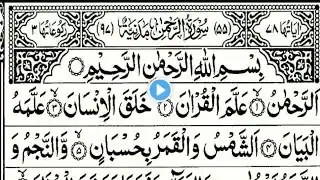 اٰیَاتُهَا ۷۸ (۵۵) سُوْرَةُ الرَّحْمٰنِ مَدَنِيَّةٌ (۹۷) رُكُوْعَاتُهَا ۳
بِسْمِ اللّٰهِ الرَّحْمٰنِ الرَّحِيْمِ
اَلرَّحْمٰنُ ۝۱ عَلَّمَ الْقُرْاٰنَ ۝۲ خَلَقَ الْاِنْسَانَ ۝۳ عَلَّمَهُ
الْبَيَانَ ۝۴ اَلشَّمْسُ وَ الْقَمَرُ بِحُسْبَانٍ ۝۵ وَّ النَّجْمُ وَ